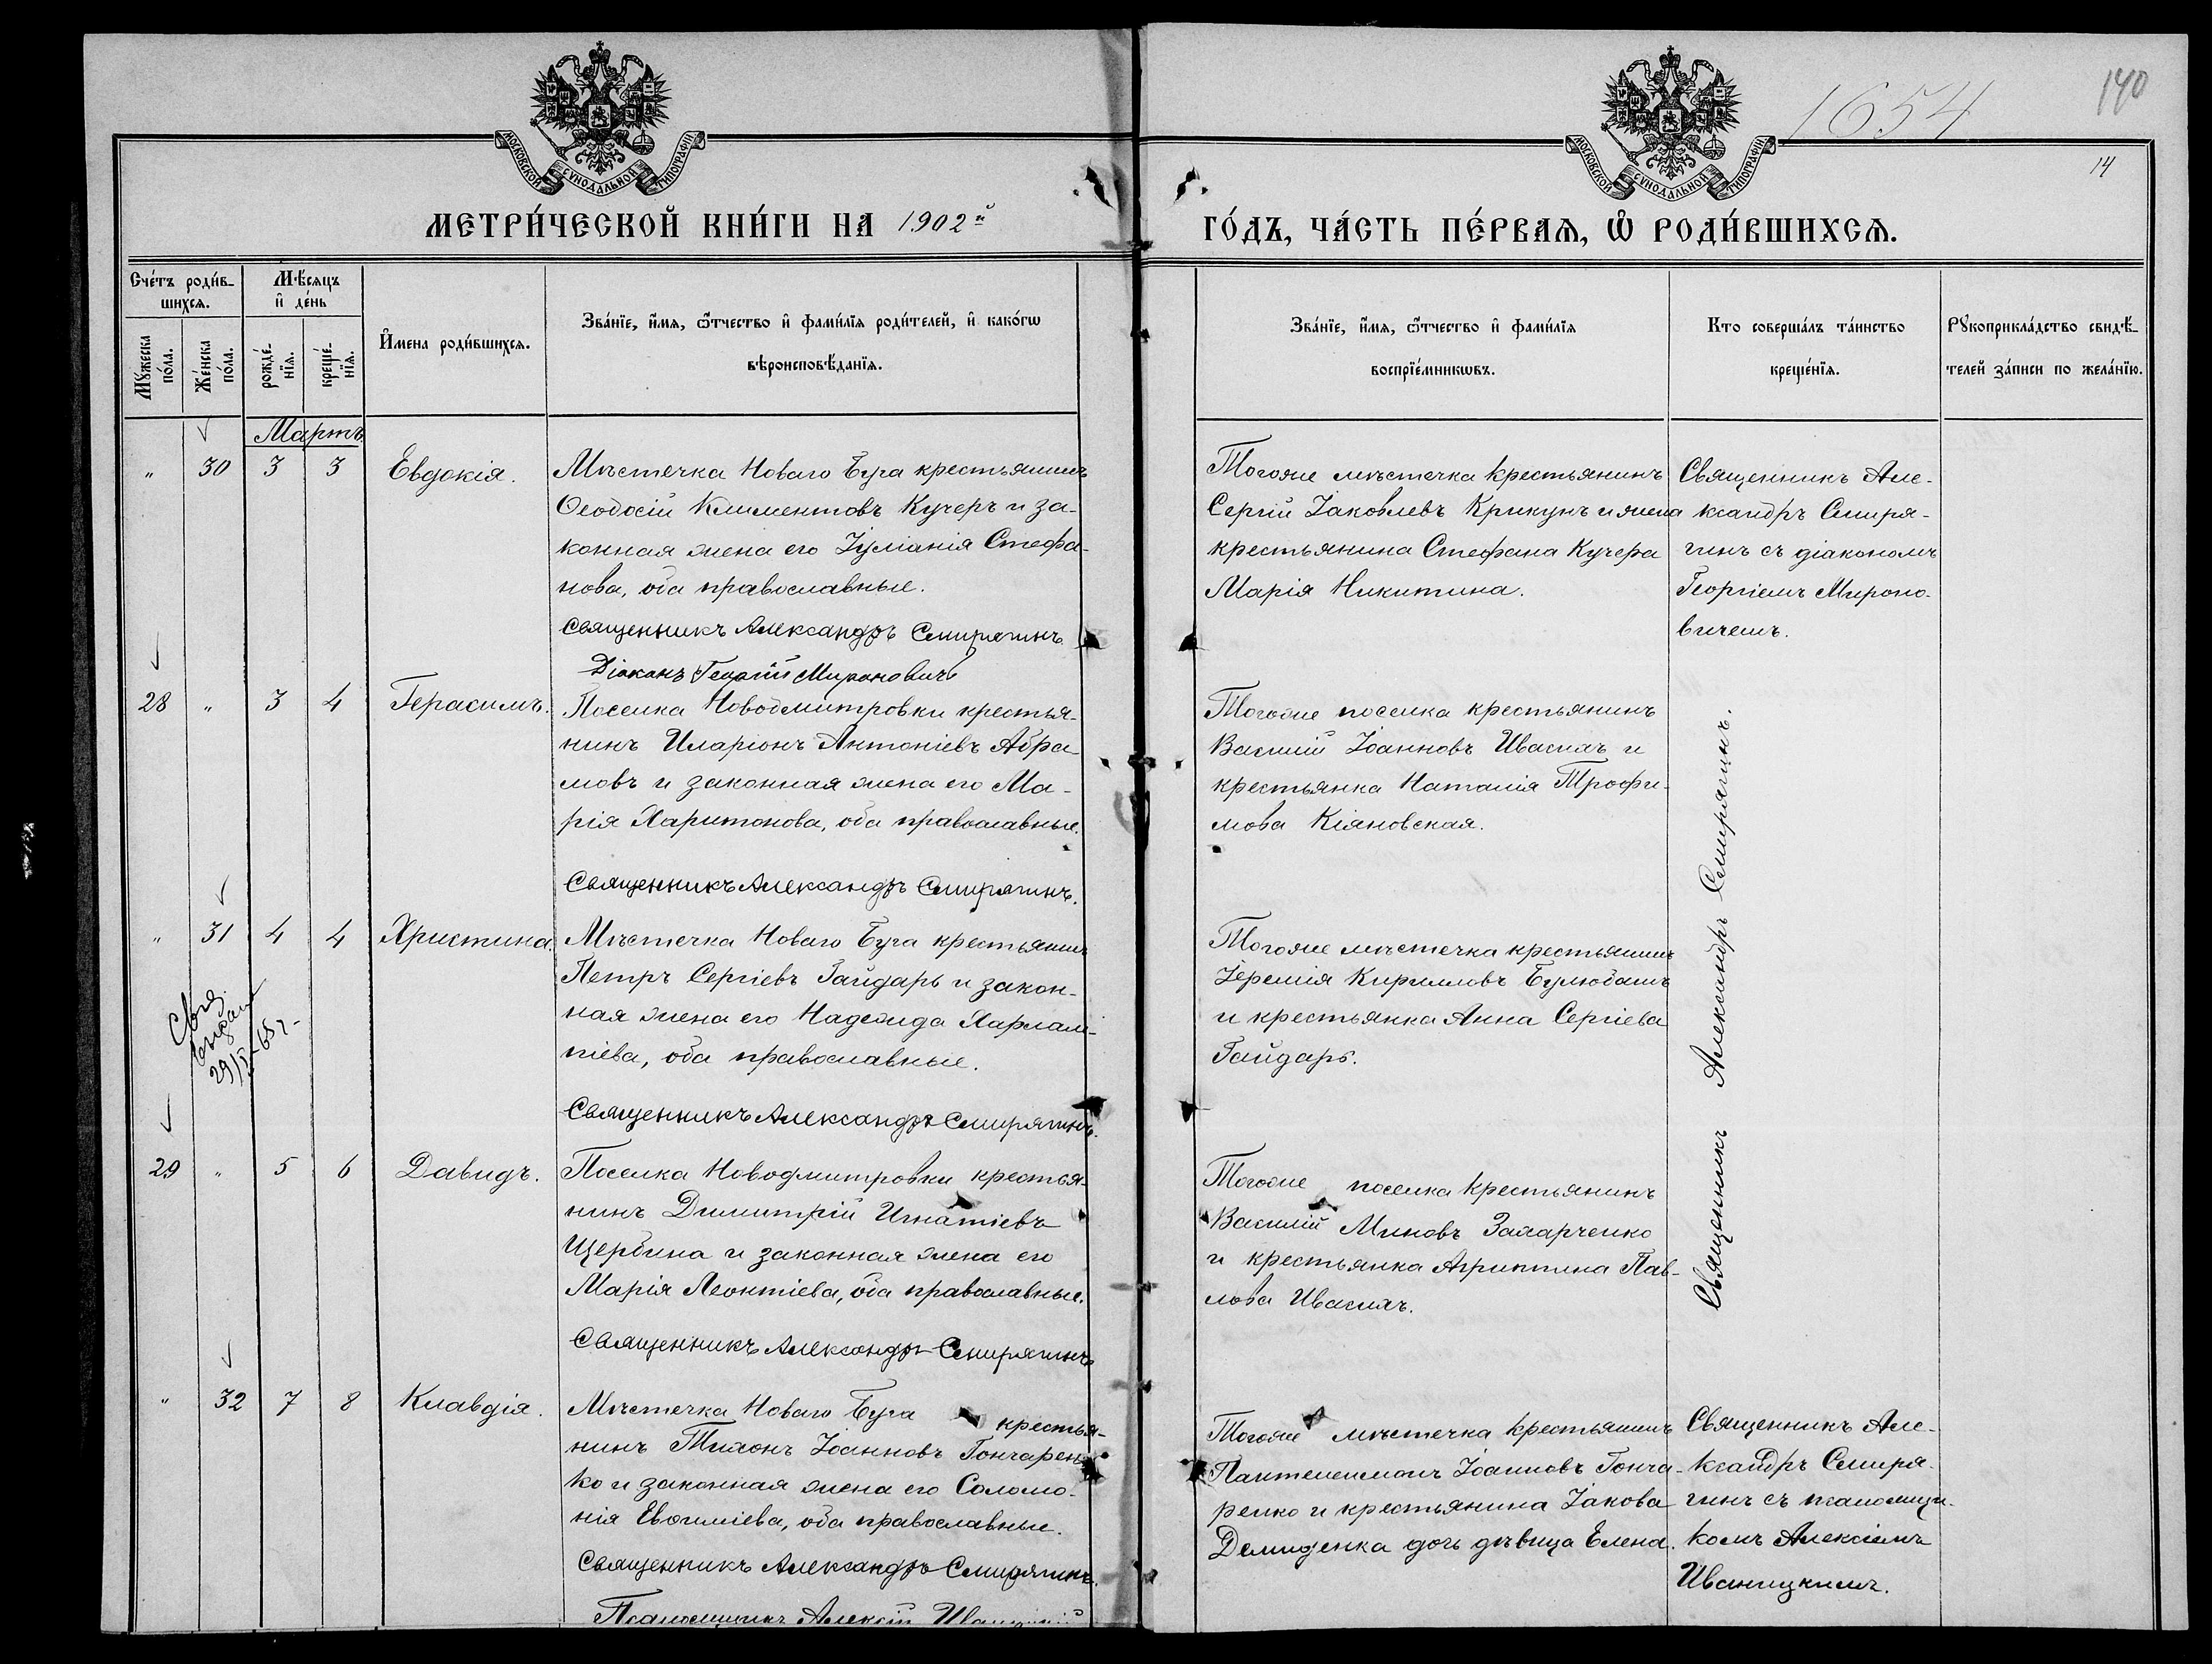 1654
140
14
МОСКОВСКОЙ СУНОДАЛЬНОЙ ТИПОГРАФІИ
МОСКОВСКОЙ СУНОДАЛЬНОЙ ТИПОГРАФІИ
МЕТРИ́ЧЕСКОЙ КНИ́ГИ НА 1902й
ГО́ДЪ, ЧА́СТЬ ПЕ́РВАѦ, Ѡ҆ РОДИ́ВШИХСѦ.
Сче́тъ роди́в-
шихсѧ.
Мѣ́сѧцъ
и҆ де́нь
Мꙋ́жеска
по́ла.
Же́нска
по́ла.
рожде́-
нїѧ.
креще́-
нїѧ.
И҆мена роди́вшихсѧ.
Зва́нїе, и҆́мѧ, ѻ҆́тчество и҆ фами́лїѧ роди́телей, и҆ како́гѡ
вѣроисповѣ́данїѧ.
Зва́нїе, и҆́мѧ, ѻ҆́тчество и҆ фами́лїѧ
воспрїе́мникѡвъ.
Кто соверша́лъ та́инство
креще́нїѧ.
Рꙋкоприкла́дство свидѣ́-
телей за́писи по жела́нїю.
Мартъ
" 30 3 3 Евдокія.
Мѣстечка Новаго Буга крестьянинъ
Ѳеодосій Климентовъ Кучеръ и за-
конная жена его Іуліанія Стефа-
нова, оба православные.
Священникъ Александръ Смирягинъ
Діаконъ Георгій Мироновичъ
Тогоже мѣстечка крестьянинъ
Сергій Іаковлевъ Крикунъ и жена
крестьянина Стефана Кучера
Марія Никитина.
Священникъ Але-
ксандръ Смиря-
гинъ съ діакономъ
Георгіемъ Мироно-
вичемъ.
28 " 3 4 Герасимъ.
Поселка Новодмитровки крестья-
нинъ Иларіонъ Антоніевъ Абра-
мовъ и законная жена его Ма-
рія Харитонова, оба православные.
Священникъ Александръ Смирягинъ.
Тогоже поселка крестьянинъ
Василій Іоанновъ Ивасихъ и
крестьянка Наталія Трофи-
мова Кіяновская.
Священникъ Александръ Смирягинъ.
" 31 4 4 Христина.
Мѣстечка Новаго Буга крестьянинъ
Петръ Сергіевъ Гайдарь и закон-
ная жена его Надежда Харлам-
піева, оба православные.
Священникъ Александръ Смирягинъ.
Тогоже мѣстечка крестьянинъ
Іеремія Кирилловъ Булюбашъ
и крестьянка Анна Сергіева
Гайдарь.
29/5-65 г.
29 " 5 6 Давидъ.
Поселка Новодмитровки крестья-
нинъ Димитрій Игнатіевъ
Щербина и законная жена его
Марія Леонтіева, оба православные.
Священникъ Александръ Смирягинъ
Тогоже поселка крестьянинъ
Василій Миновъ Захарченко
и крестьянка Агриппина Пав-
лова Ивасихъ.
" 32 7 8 Клавдія.
Мѣстечка Новаго Буга крестья-
нинъ Тихонъ Іоанновъ Гончарен-
ко и законная жена его Соломо-
нія Евѳиміева, оба православные.
Священникъ Александръ Смирягинъ.
Псаломщикъ Алексій Иваницкій
Тогоже мѣстечка крестьянинъ
Пантелеимонъ Іоанновъ Гонча-
ренко и крестьянина Іакова
Демиденка дочь дѣвица Елена.
Священникъ Але-
ксандръ Смиря-
гинъ съ псаломщи-
комъ Алексіемъ
Иваницкимъ.